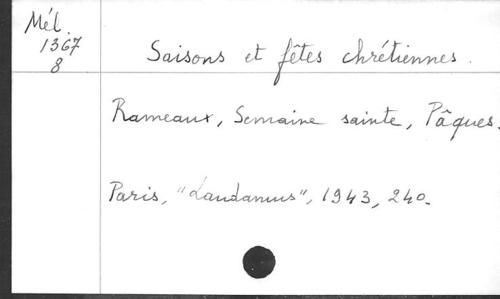 Mél.
1367
8
Saisons et fêtes chrétiennes.
Rameaux, Semaine sainte, Pâques.
Paris, "Laudamus", 1943, 240.